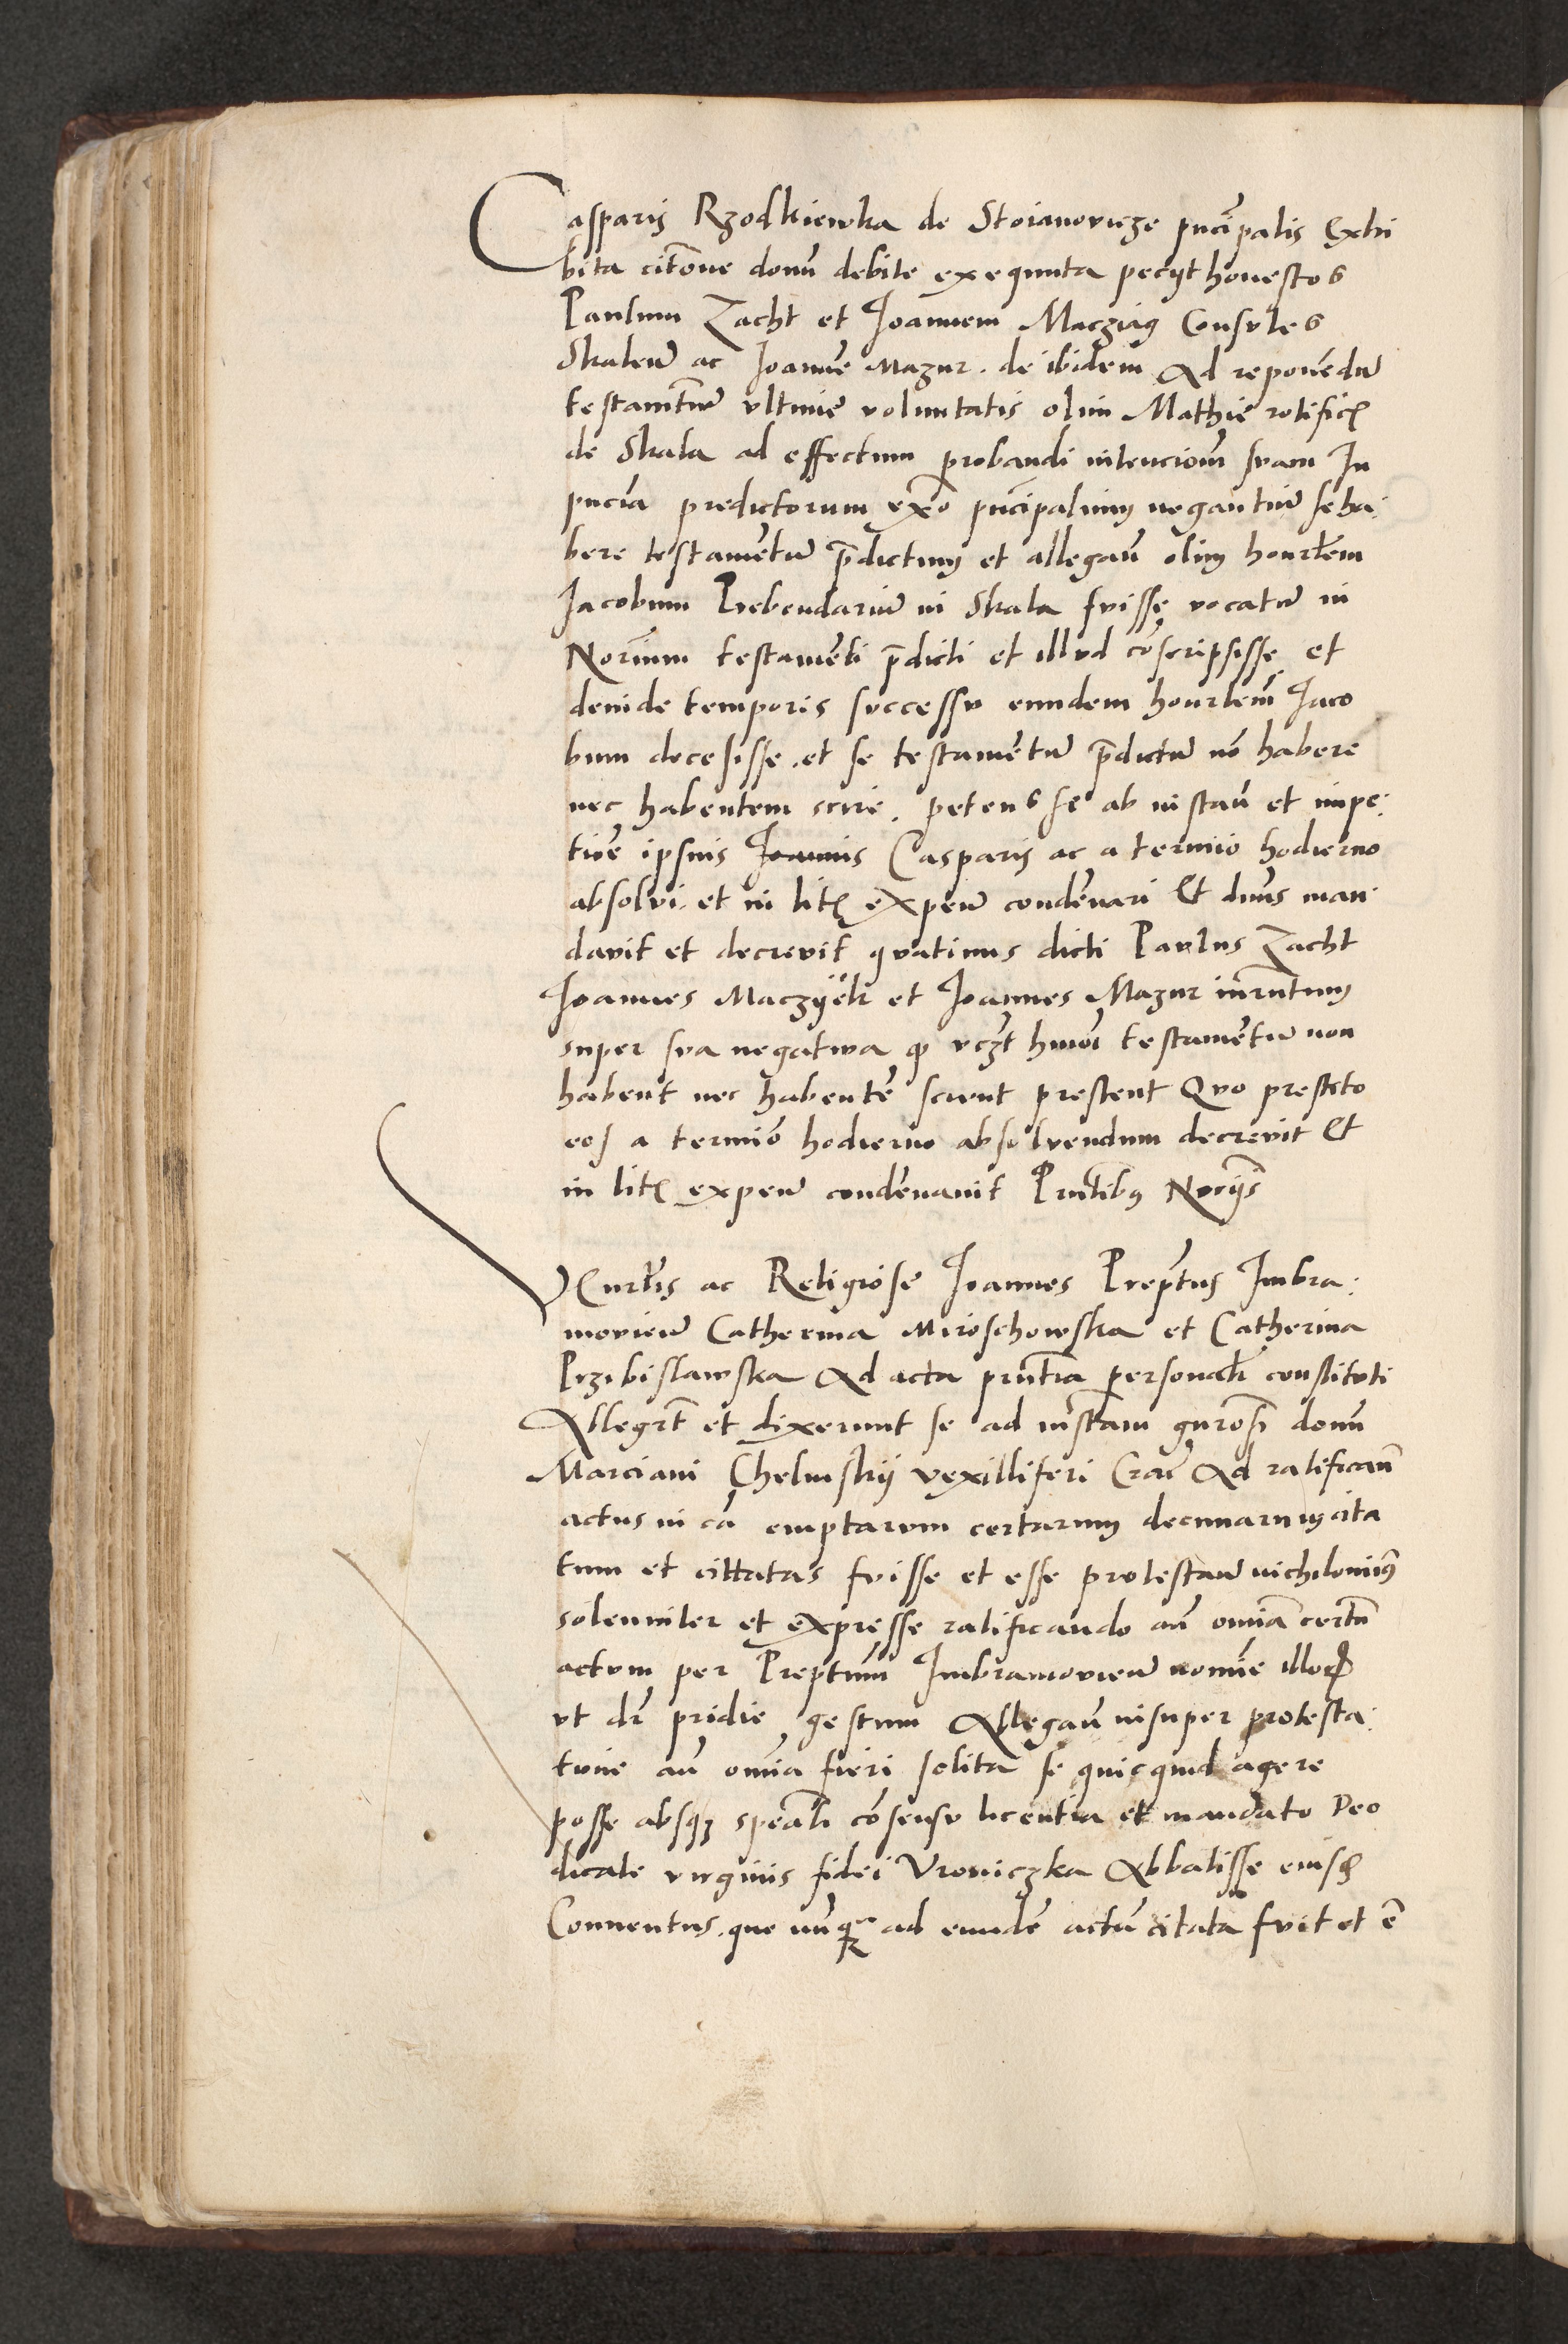 Casparis Rzodkiewka de Stoianovicze pncipalis Exhi
bita citone donu debite exequuta peciyt honestos
Paulum Zacht et Joannem Macziug Consules
Skalen ac Joanne Mazur de ibidem Ad reponedu
testamtum ultime voluntatis olim Mathie rotific
de Skala ad effectum probandi intencionm suam In
pncia predictorum exo pncipalium negantiu se ha
bere testamentu pdictum et allegan olim honrlem
Jacobum Prebendariu in Skala fuisse vocatu in
Norium testamenti pdicti et illud coscripsisse et
deinde temporis successu eundem honrlem Jaco
bum decesisse et se testamentu pdictu no habere
nec habentem scire. petens se ab instan et impe
tione ipsius Joannis Casparis ac a termio hodierno
absolvi et in lit expen condemnari Et dnus man
davit et decrevit quatinus dicti Paulus Zacht
Joannes Maczyek et Joannes Mazur inrntum
super sua negativa q vczt hmoi testamentu non
habent nec habente sciunt prestent Quo prestito
eos a termio hodierno absolvendum decrevit Et
in lit expen condenavit Prntibus Norys
Vcnrlis ac Religiose Joannes Preptus Imbra
movien Catherina Miroschowska et Catherina
Przibislawska Ad acta prntia personalr constituti
Allegrt et dixerunt se ad instam gnrosi donu
Marciani Chelmskij vexilliferi Crac Ad ratifican
actus in ca emptarum certarum decimarum cita
tum et cittatas fuisse et esse protestan nichilomius
solenniter et expresse ratificando an omia certu
actum per Preptum Imbramovien nomine illor
ut dr pridie gestum Allegan insuper protesta
tione an omia fieri solita se quicquid agere
posse absq speali cosensu licentia et mandato Deo
dicate virginis fidei Vroniczka Abbatisse eiusd
Conventus que nunq ad eunde actu citata fuit et e